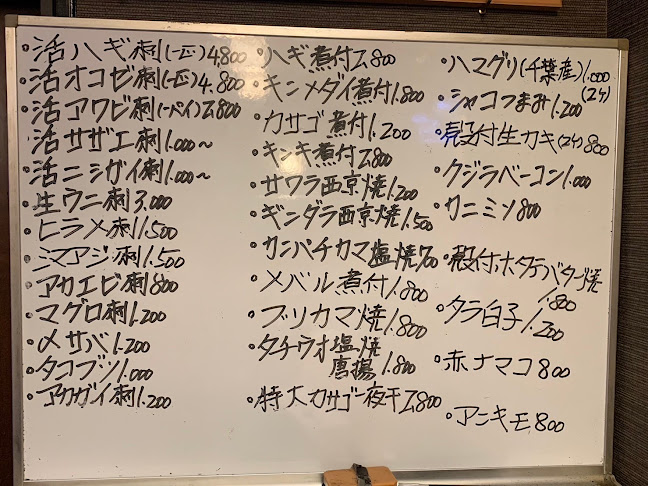 ・活ハギ刺(一匹)4.800
・活オコゼ刺(一匹)4.800
・活アワビ刺(一パイ)2.800
・活サザエ刺1.000~
・活ニシガイ刺1.000~
・生ウニ刺3.000
・ヒラメ刺1.500
・シマアジ刺1.500
・アカエビ刺800
・マグロ刺1.200
・〆サバ1.200
・タコブツ1.000
・アカガイ刺1.200
・ハギ煮付2.800
・キンメダイ煮付1.800
・カサゴ煮付1.200
・キンキ煮付2.800
・サワラ西京焼1.200
・ギンダラ西京焼1.500
・カンパチカマ塩焼700
・メバル煮付1.800
・ブリカマ焼1.800
・タチウオ塩焼
唐揚1.800
・特大カサゴ一夜干2.800
・ハマグリ(千葉産)1.000
(2ケ)
・シャコつまみ1.200
・殻付生カキ(2ケ)800
・クジラベーコン1.000
・カニミソ800
・殻付ホタテバター焼
1.800
・タラ白子1.200
・赤ナマコ800
・アンキモ800